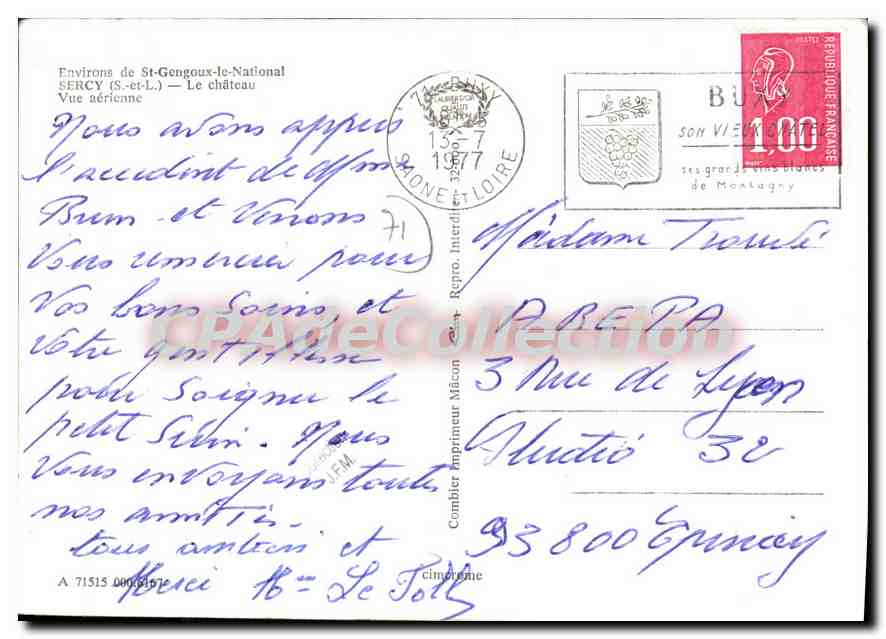 Environs de St-Gengoux-le-National
SERCY (S.-et-L.) — Le château
Vue aérienne
Nous avons appris
l'accident de Mme
Brun et Venons
Vous remercier pour
Vos bons Soins, et
Votre gentillesse
pour Soigner le
petit
Nous
Vous envoyons toutes
nos amitiés.
et
Merci Mme Le
A 71515 000
cimcrome
71
J.F.M.
Combier Imprimeur Mâcon
Repro. Interdite
71 BUXY
13-7
1977
SAONE ET LOIRE
BUXY
SON VIEUX
ses grands vins blancs
de Montagny
REPUBLIQUE FRANÇAISE
POSTES
1,00
Madame
AREPA
3 Rue de Lyon
Studio 32
93800 Epinay
CPAdeCollection.com